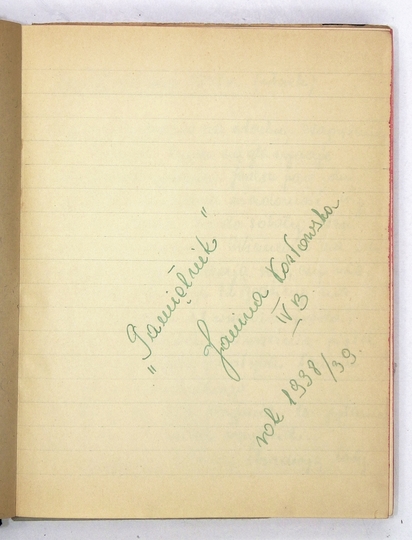 "Pamiętnik"
Janina Kostowska
IV B
rok 1938/39.